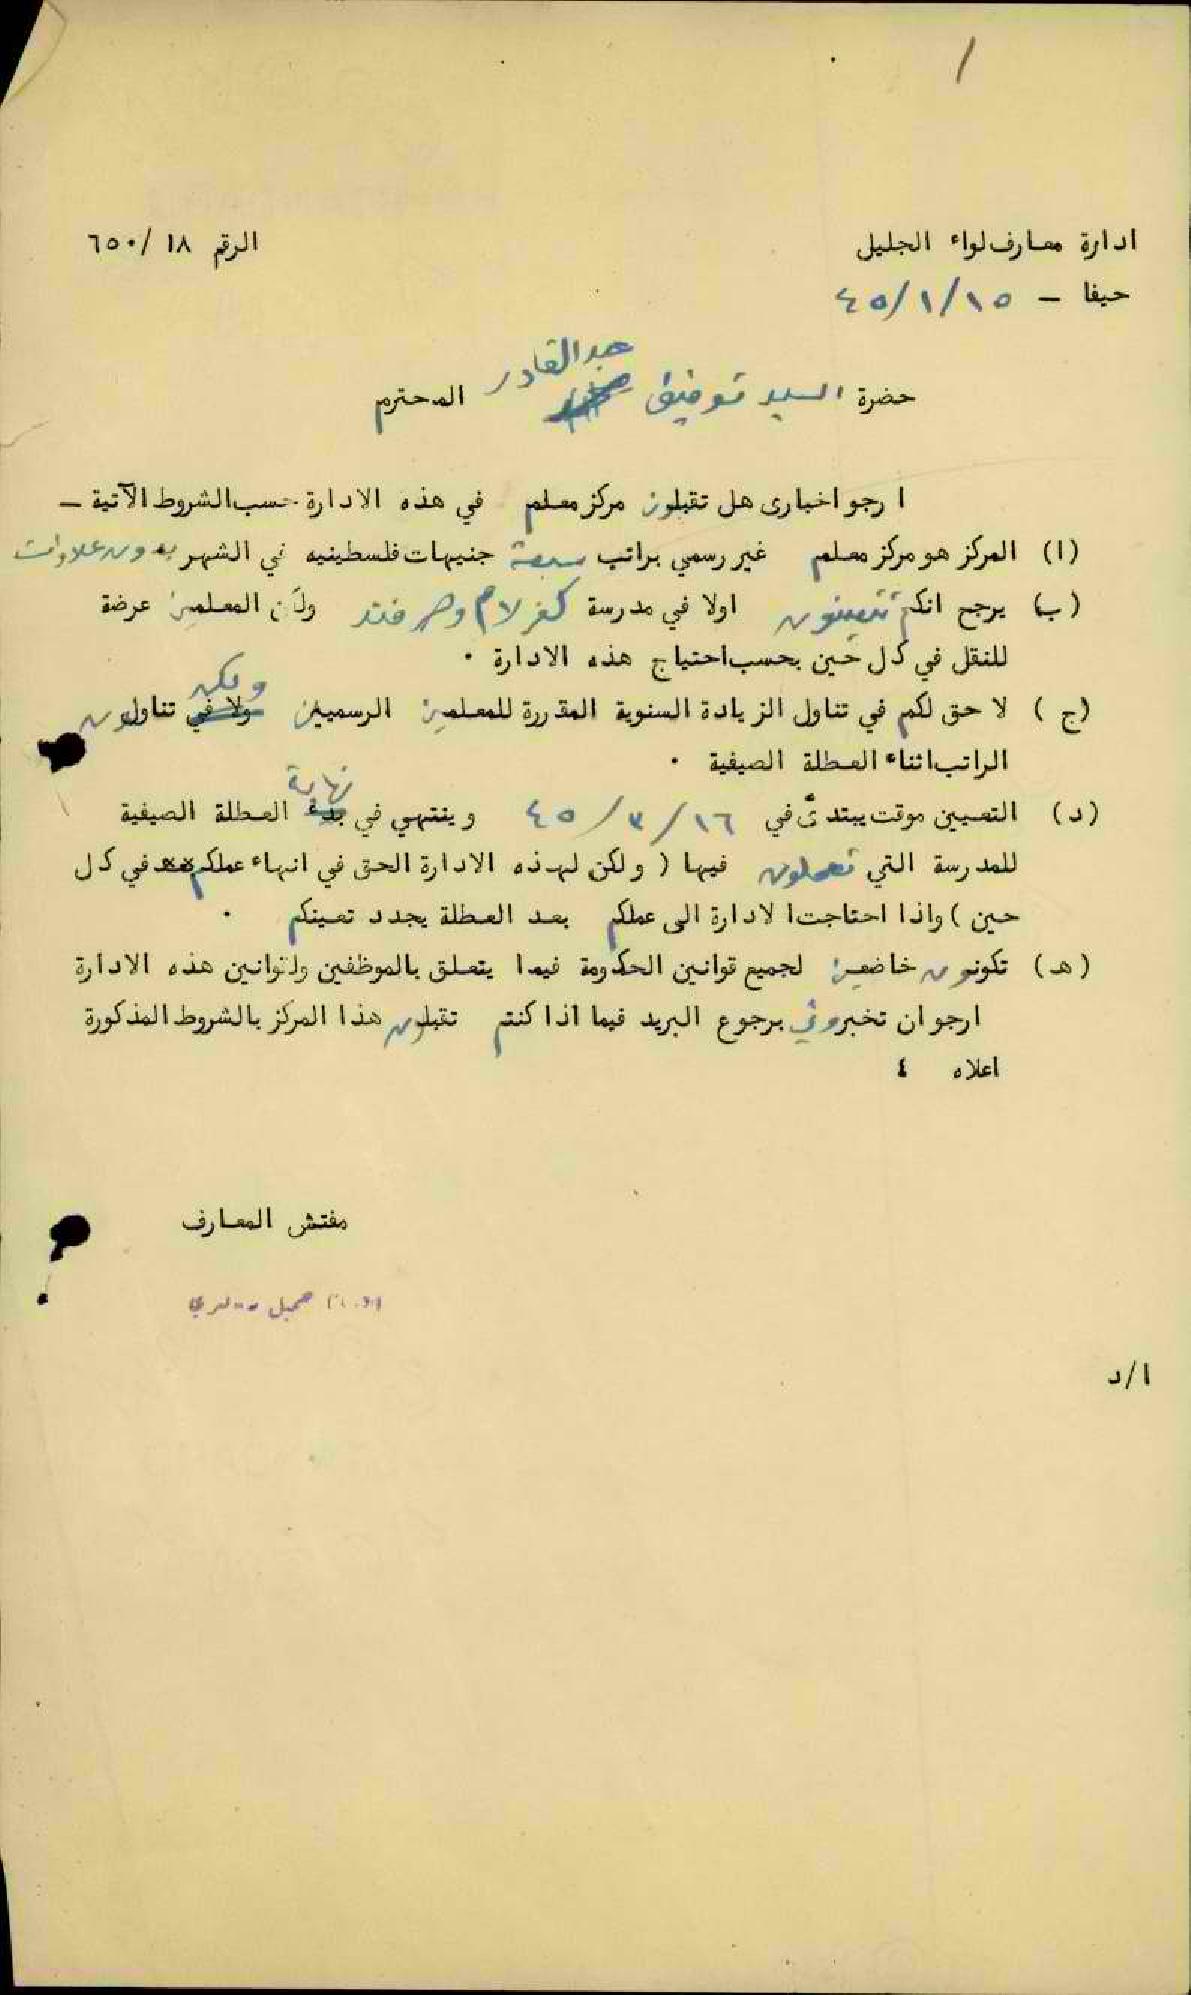 ١
ادارة معارف لواء الجليل الرقم ١٨ /٦٥٠
حيفا - ٤٥/١/١٥
عبد القادر
حضرة السيد توفيق المحترم
ارجو اخبارى هل تقبلون مركز معلم في هذه الادارة حسب الشروط الآتية -
(ا) المركز هو مركز معلم غير رسمي براتب سبعة جنيهات فلسطينيه في الشهر بدون علاوات
(ب) يرجح انكم تتعينون اولا في مدرسة كفر لام وصرفند ولكن المعلمين عرضة
للنقل في كل حين بحسب احتياج هذه الادارة ٠
ولكن
(ج) لا حق لكم في تناول الزيادة السنوية المقررة للمعلمين الرسميين ولا في تناولون
الراتب اثناء العطلة الصيفية ٠
نهاية
(د) التعيين موقت يبتدئ في ١٦/٣/٤٥ وينتهي في بدء العطلة الصيفية
للمدرسة التي تعملون فيها ( ولكن لهذه الادارة الحق في انهاء عملكم في كل
حين ) واذا احتاجت الادارة الى عملكم بعد العطلة يجدد تعينكم ٠
(هـ) تكونون خاضعين لجميع قوانين الحكومة فيما يتعلق بالموظفين ولقوانين هذه الادارة
ارجو ان تخبروني برجوع البريد فيما اذا كنتم تقبلون هذا المركز بالشروط المذكورة
اعلاه ٤
مفتش المعارف
جميل
ا/د